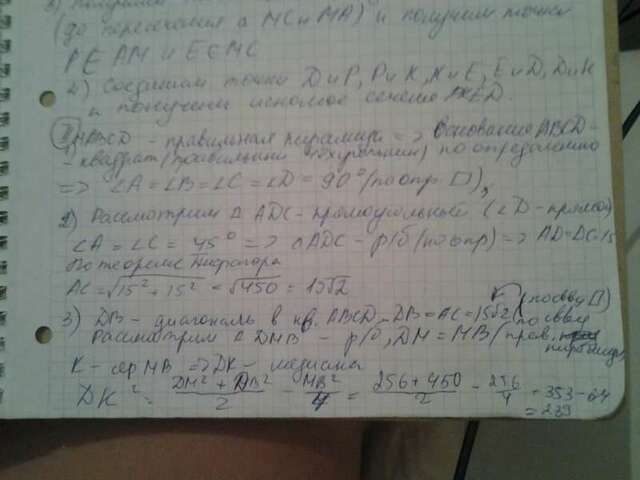 (до пересечения с MC и MA) и получим точки
P∈AM и E∈MC
2) Соединим точки D и P, P и K, K и E, E и D, D и K
и получили искомое сечение PKED.
MABCD - правильная пирамида => основание ABCD -
- квадрат (правильный четырехугольник) по определению
=> ∠A = ∠B = ∠C = ∠D = 90° (по опр. □),
2) Рассмотрим Δ ADC - прямоугольный (∠D - прямой)
∠A = ∠C = 45° => ΔADC - р/б (по опр) => AD = DC = 15
По теореме Пифагора
AC = √15² + 15² = √450 = 15√2
3) DB - диагональ в кв. ABCD, DB = AC = 15√2 (по св-ву □)
Рассмотрим Δ DMB - р/б, DM = MB (прав. пирамида)
K - сер MB => DK - медиана
DK² = DM² + DB² / 2 - MB² / 4 = 256 + 450 / 2 - 256 / 4 = 353 - 64
= 289